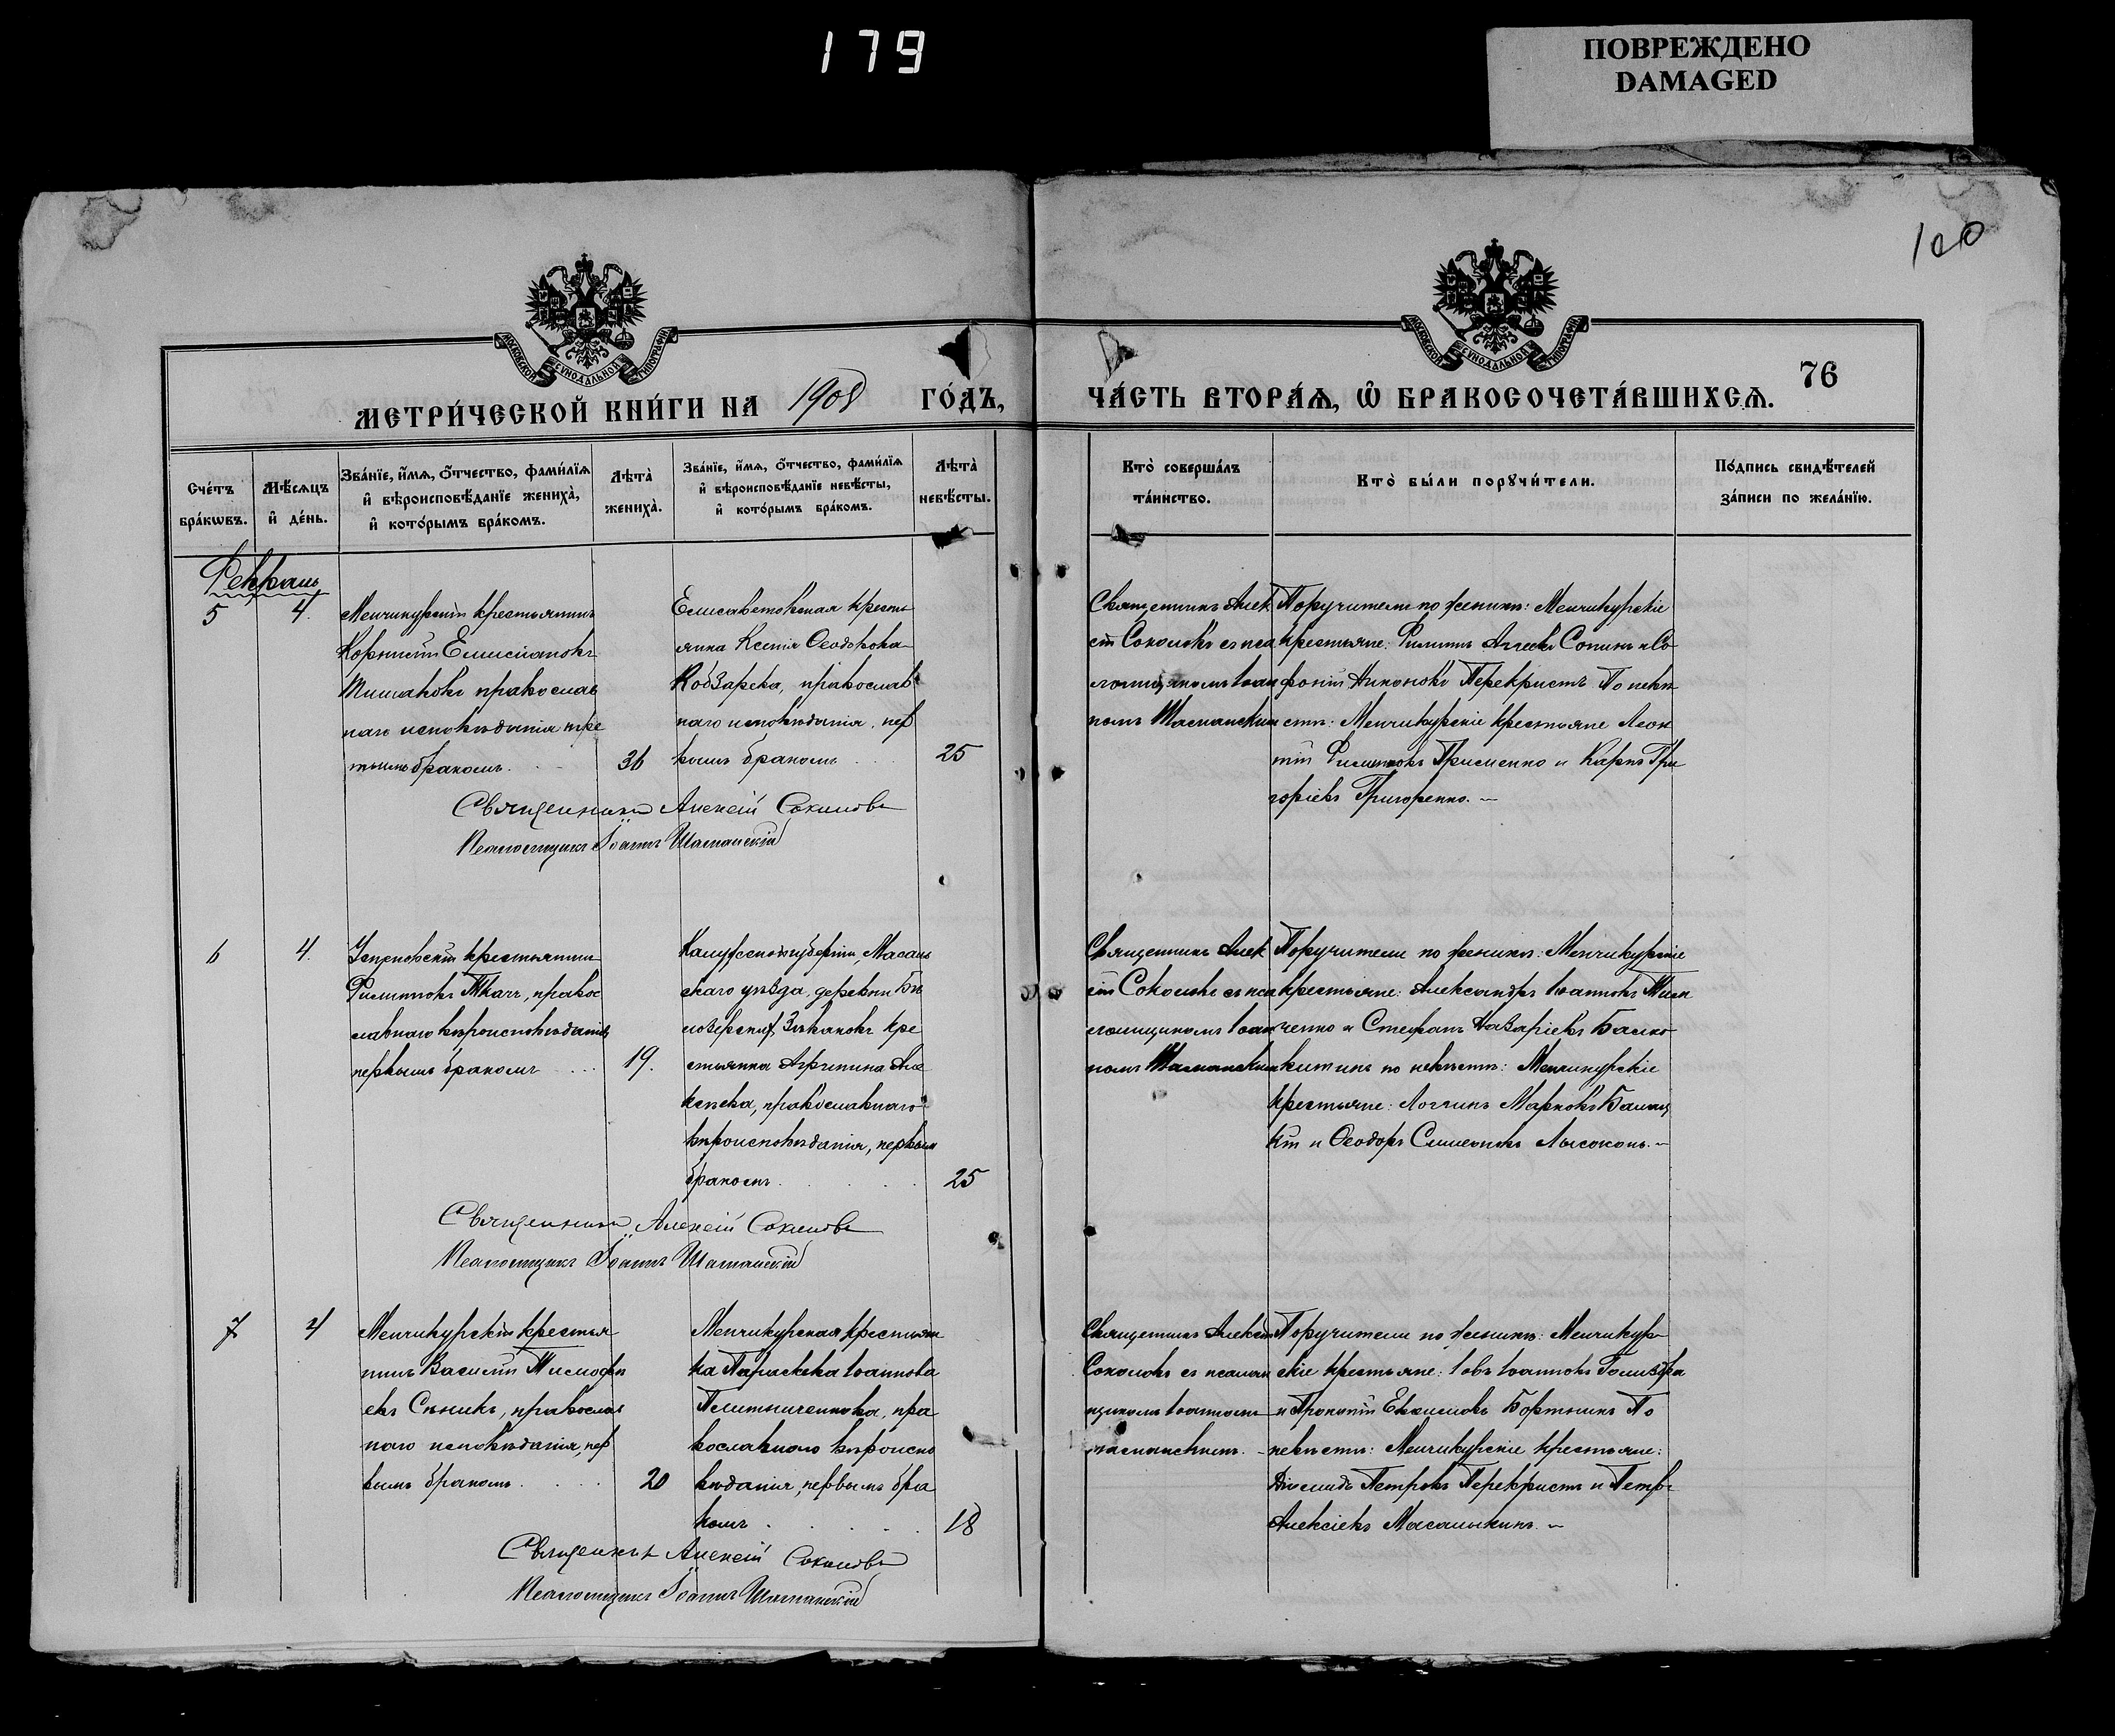 179
ПОВРЕЖДЕНО
DAMAGED
100
МОСКОВСКОЙ СѴНОДАЛЬНОЙ ТИПОГРАФІИ
МОСКОВСКОЙ СѴНОДАЛЬНОЙ ТИПОГРАФІИ
МЕТРИ́ЧЕСКОЙ КНИ́ГИ НА 1908 ГО́ДЪ,
ЧА́СТЬ ВТОРА́Ѧ, Ѽ БРАКОСОЧЕТА́ВШИХСѦ.
76
Сче́тъ бра́кѡвъ.
Мѣ́сѧцъ и҆ де́нь.
Зва́нїе, и҆́мѧ, ѻ҆́тчество, фами́лїѧ и҆ вѣроисповѣ́данїе жениха̀, и҆ кото́рымъ бра́комъ.
Лѣта̀ жениха̀.
Зва́нїе, и҆́мѧ, ѻ҆́тчество, фами́лїѧ и҆ вѣроисповѣ́данїе невѣ́сты, и҆ кото́рымъ бра́комъ.
Лѣта̀ невѣ́сты.
Кто̀ соверша́лъ та́инство.
Кто̀ бы́ли порꙋчи́тели.
По́дпись свидѣ́телей за́писи по жела́нїю.
Февраль
5
4.
Менчикурскій крестьянинъ
Корнилій Емиліановъ
Тишаковъ православ
наго исповѣданія тре
тьимъ бракомъ.
36
Елисаветовская кресть
янка Ксенія Ѳеодорова
Кобзарева, православ
наго исповѣданія, пер
вымъ бракомъ
25
Священникъ Алек
сій Соколовъ съ пса
ломщикомъ Іоан
номъ Шаманским
Поручители по женихѣ: Менчикурскіе
крестьяне: Филиппъ Сопинъ и Со
фоній Никоновъ Перекристъ По невѣ
стѣ: Менчикурскіе крестьяне Леон
тій Филипповъ и Карпъ Гри
горіевъ Григоренко.
Священникъ Алексій Соколовъ
Псаломщикъ Іоаннъ Шаманскій
6
4.
Успеновскій крестьянин
Филипповъ Ткачъ, правос
лавнаго вѣроисповѣданія
первымъ бракомъ
19.
Калужской губерніи, Масаль
скаго уѣзда, деревни Бѣ
кре
стьянка Агрипина Але
ксѣева, православнаго
вѣроисповѣданія, первым
бракомъ
25
Священникъ Алек
сій Соколовъ съ пса
ломщикомъ Іоан
номъ Шаманским
Поручители по женихѣ: Менчикурскіе
крестьяне: Александръ Іоанновъ
ченко и Стефанъ Назаріевъ
по невѣстѣ: Менчикурскіе
крестьяне: Логгинъ Марковъ
и Ѳеодоръ Симеоновъ Лысоконь.
Священникъ Алексій Соколовъ
Псаломщикъ Іоаннъ Шаманскій
7
4
Менчикурскій крестья
нинъ Василій Тимофѣ
евъ Сѣникъ, православ
наго исповѣданія, пер
вымъ бракомъ
20
Менчикурская крестьян
ка Параскева Іоаннова
пра
вославнаго вѣроиспо
вѣданія, первымъ бра
комъ
18
Священникъ Алексій
Соколовъ съ псалом
щикомъ Іоанномъ
Шаманскимъ.
Поручители по женихѣ: Менчикур
скіе крестьяне: Іовъ Іоанновъ
и Прокопій Евфимовъ Бортникъ По
невѣстѣ: Менчикурскіе крестьяне:
Діомидъ Петровъ Перекристъ и Петръ
Алексіевъ Масалыкинъ.
Священникъ Алексій Соколовъ
Псаломщикъ Іоаннъ Шаманскій